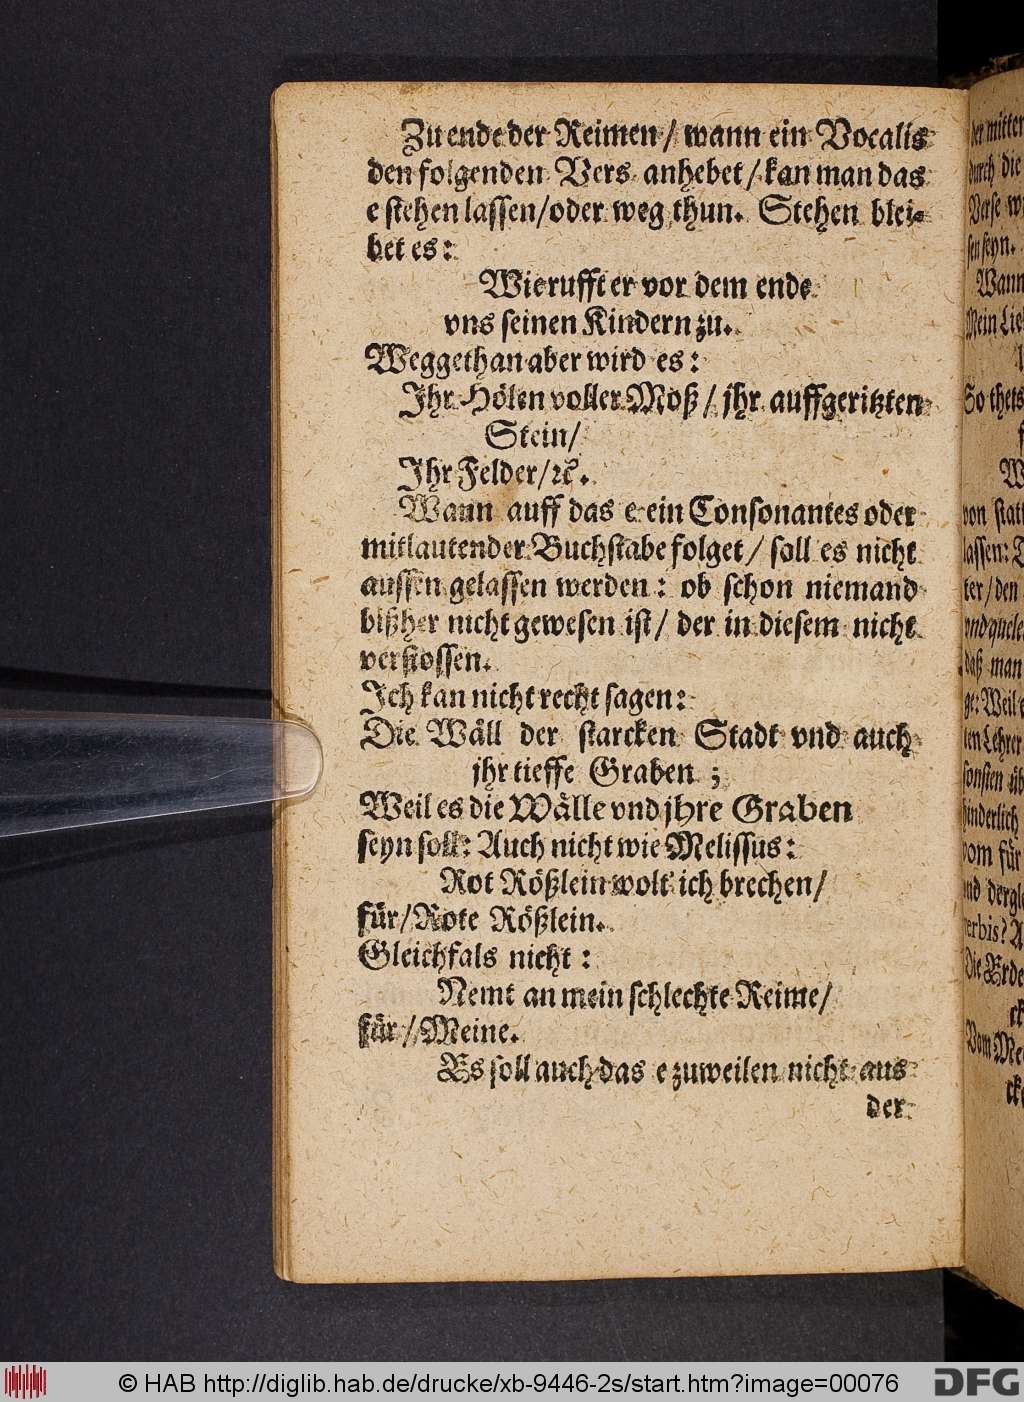 Zu ende der Reimen / wann ein Vocalis
den folgenden Vers anhebet / kan man das
e stehen lassen / oder weg thun. Stehen blei-
bet es:
Wie rufft er vor dem ende
vns seinen Kindern zu.
Weggethan aber wird es:
Jhr Hölen voller Moß / jhr auffgeritzten
Stein /
Jhr Felder / ꝛc.
Wann auff das e ein Consonantes oder
mitlautender Buchstabe folget / soll es nicht
aussen gelassen werden: ob schon niemand
bißher nicht gewesen ist / der in diesem nicht
verstossen.
Jch kan nicht recht sagen:
Die Wäll der starcken Stadt vnd auch
jhr tieffe Graben ;
Weil es die Wälle vnd jhre Graben
seyn soll: Auch nicht wie Melissus:
Rot Rößlein wolt ich brechen /
für / Rote Rößlein.
Gleichfals nicht :
Nemt an mein schlechte Reime /
für / Meine.
Es soll auch das e zuweilen nicht aus
der
der mitten
durch die
Verse
seyn.
Wann
Mein
So
von statt
lassen:
ter / den
daß man
Weil
Lehrer
sonsten
hinderlich
vom für
verbis? A
Die Erde
ck
Vom
© HAB http://diglib.hab.de/drucke/xb-9446-2s/start.htm?image=00076
DFG